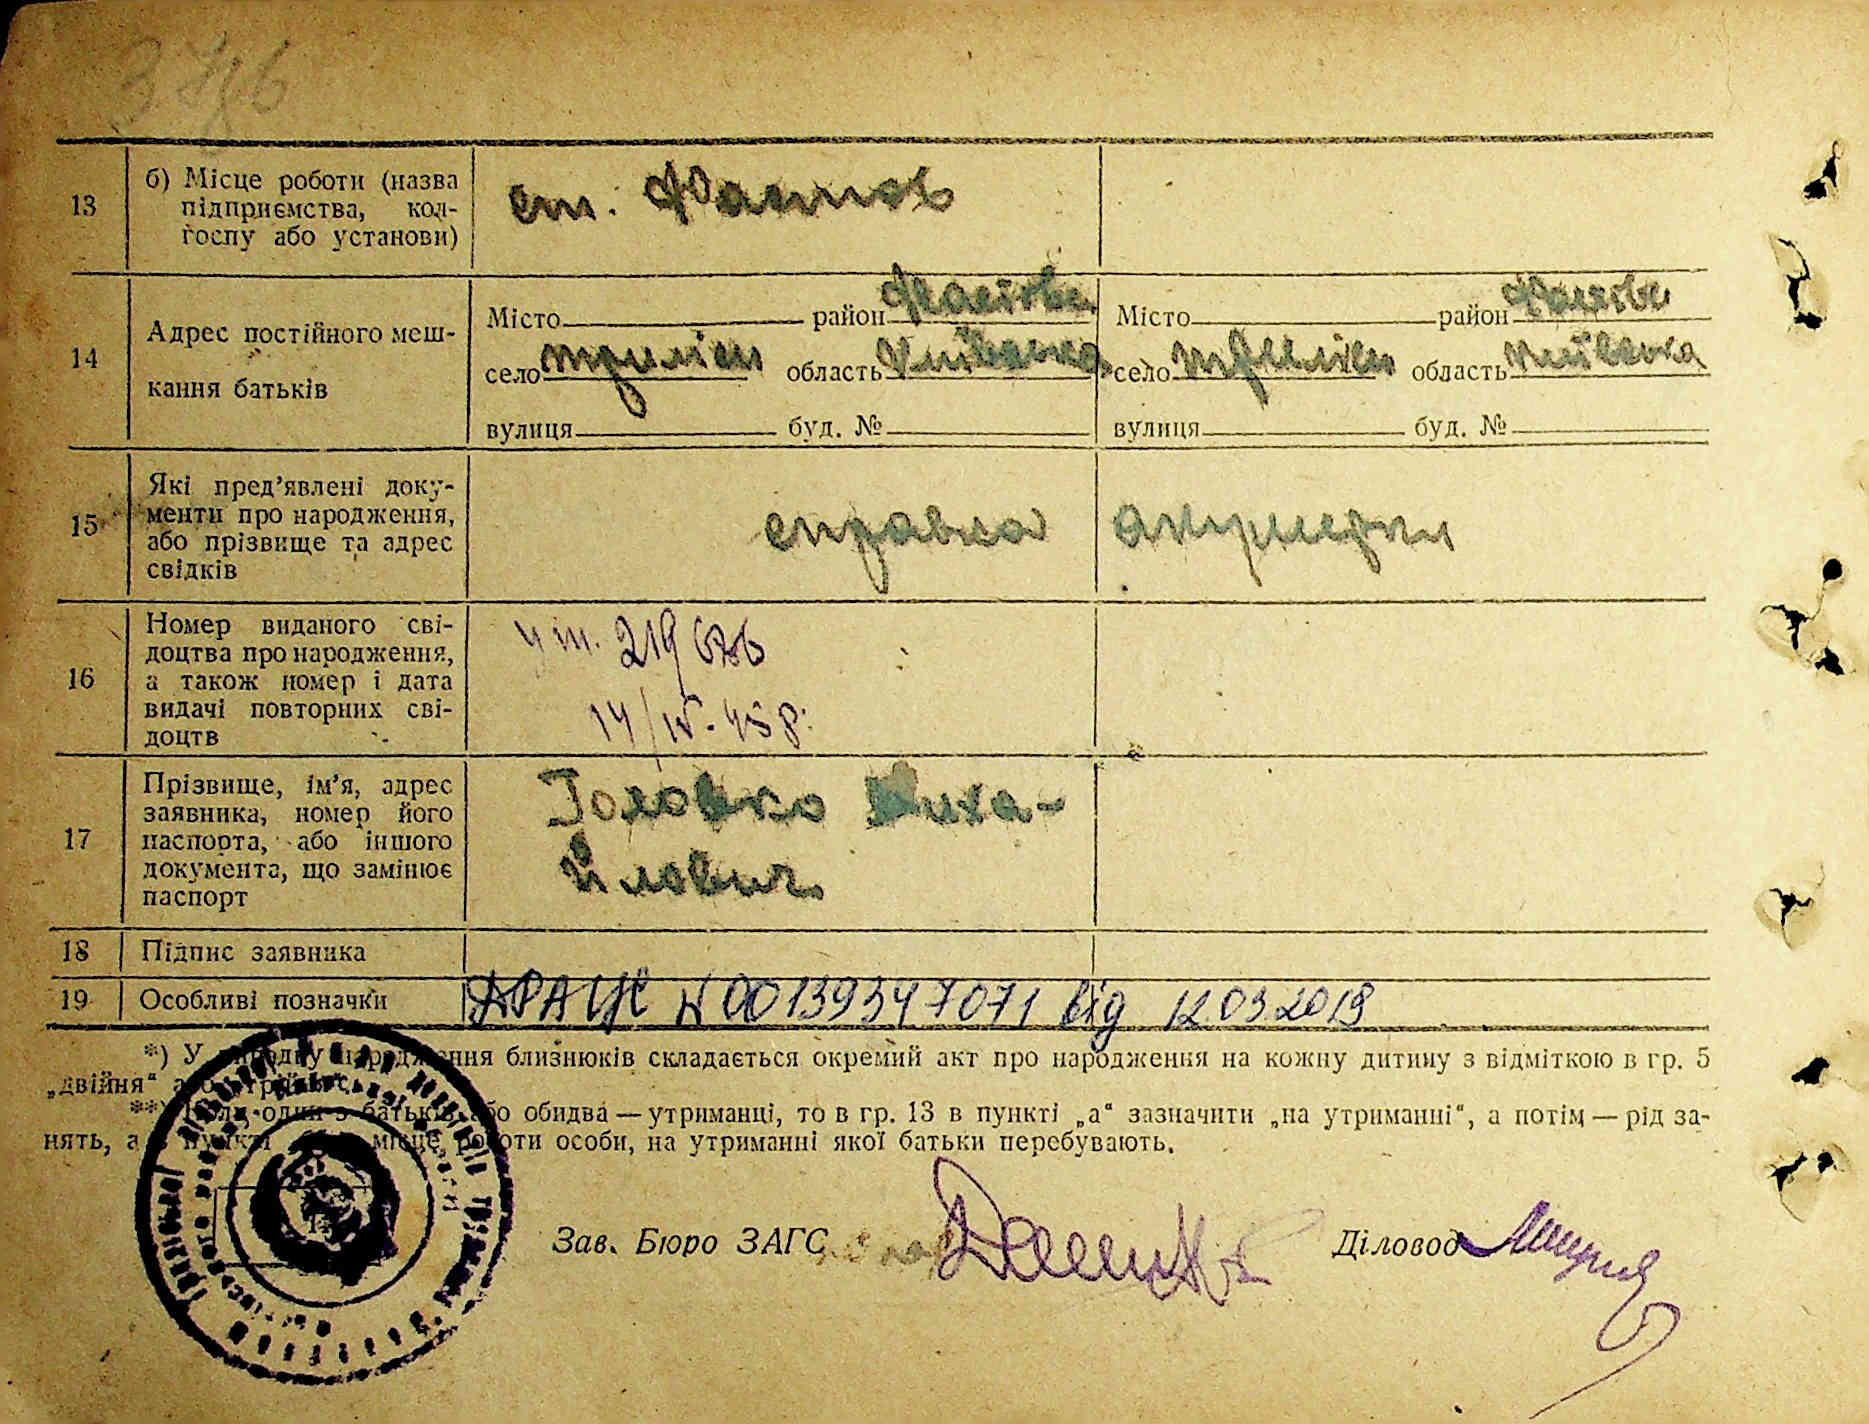 376
13 б) Місце роботи (назва
підприємства, кол-
госпу або установи)
ст. Фастов
14 Адрес постійного меш-
кання батьків
Місто район Фастівс Місто район Фастівс
село Триліси область Київська село Триліси область Київська
вулиця буд. № вулиця буд. №
15 Які пред’явлені доку-
менти про народження,
або прізвище та адрес
свідків
справка акушерки
16 Номер виданого сві-
доцтва про народження,
а також номер і дата
видачі повторних сві-
доцтв
14/IV. 45 р.
17 Прізвище, ім’я, адрес
заявника, номер його
паспорта, або іншого
документа, що замінює
паспорт
Головко Миха-
йлович
18 Підпис заявника
19 Особливі позначки ДРАЦС N 00139347071 від 12.03.2019
*) У випадку народження близнюків складається окремий акт про народження на кожну дитину з відміткою в гр. 5
„двійня“ або
**) Коли один з батьків або обидва — утриманці, то в гр. 13 в пункті „а“ зазначити „на утриманні“, а потім — рід за-
нять, а в пункті місце роботи особи, на утриманні якої батьки перебувають.
Зав. Бюро ЗАГС Діловод